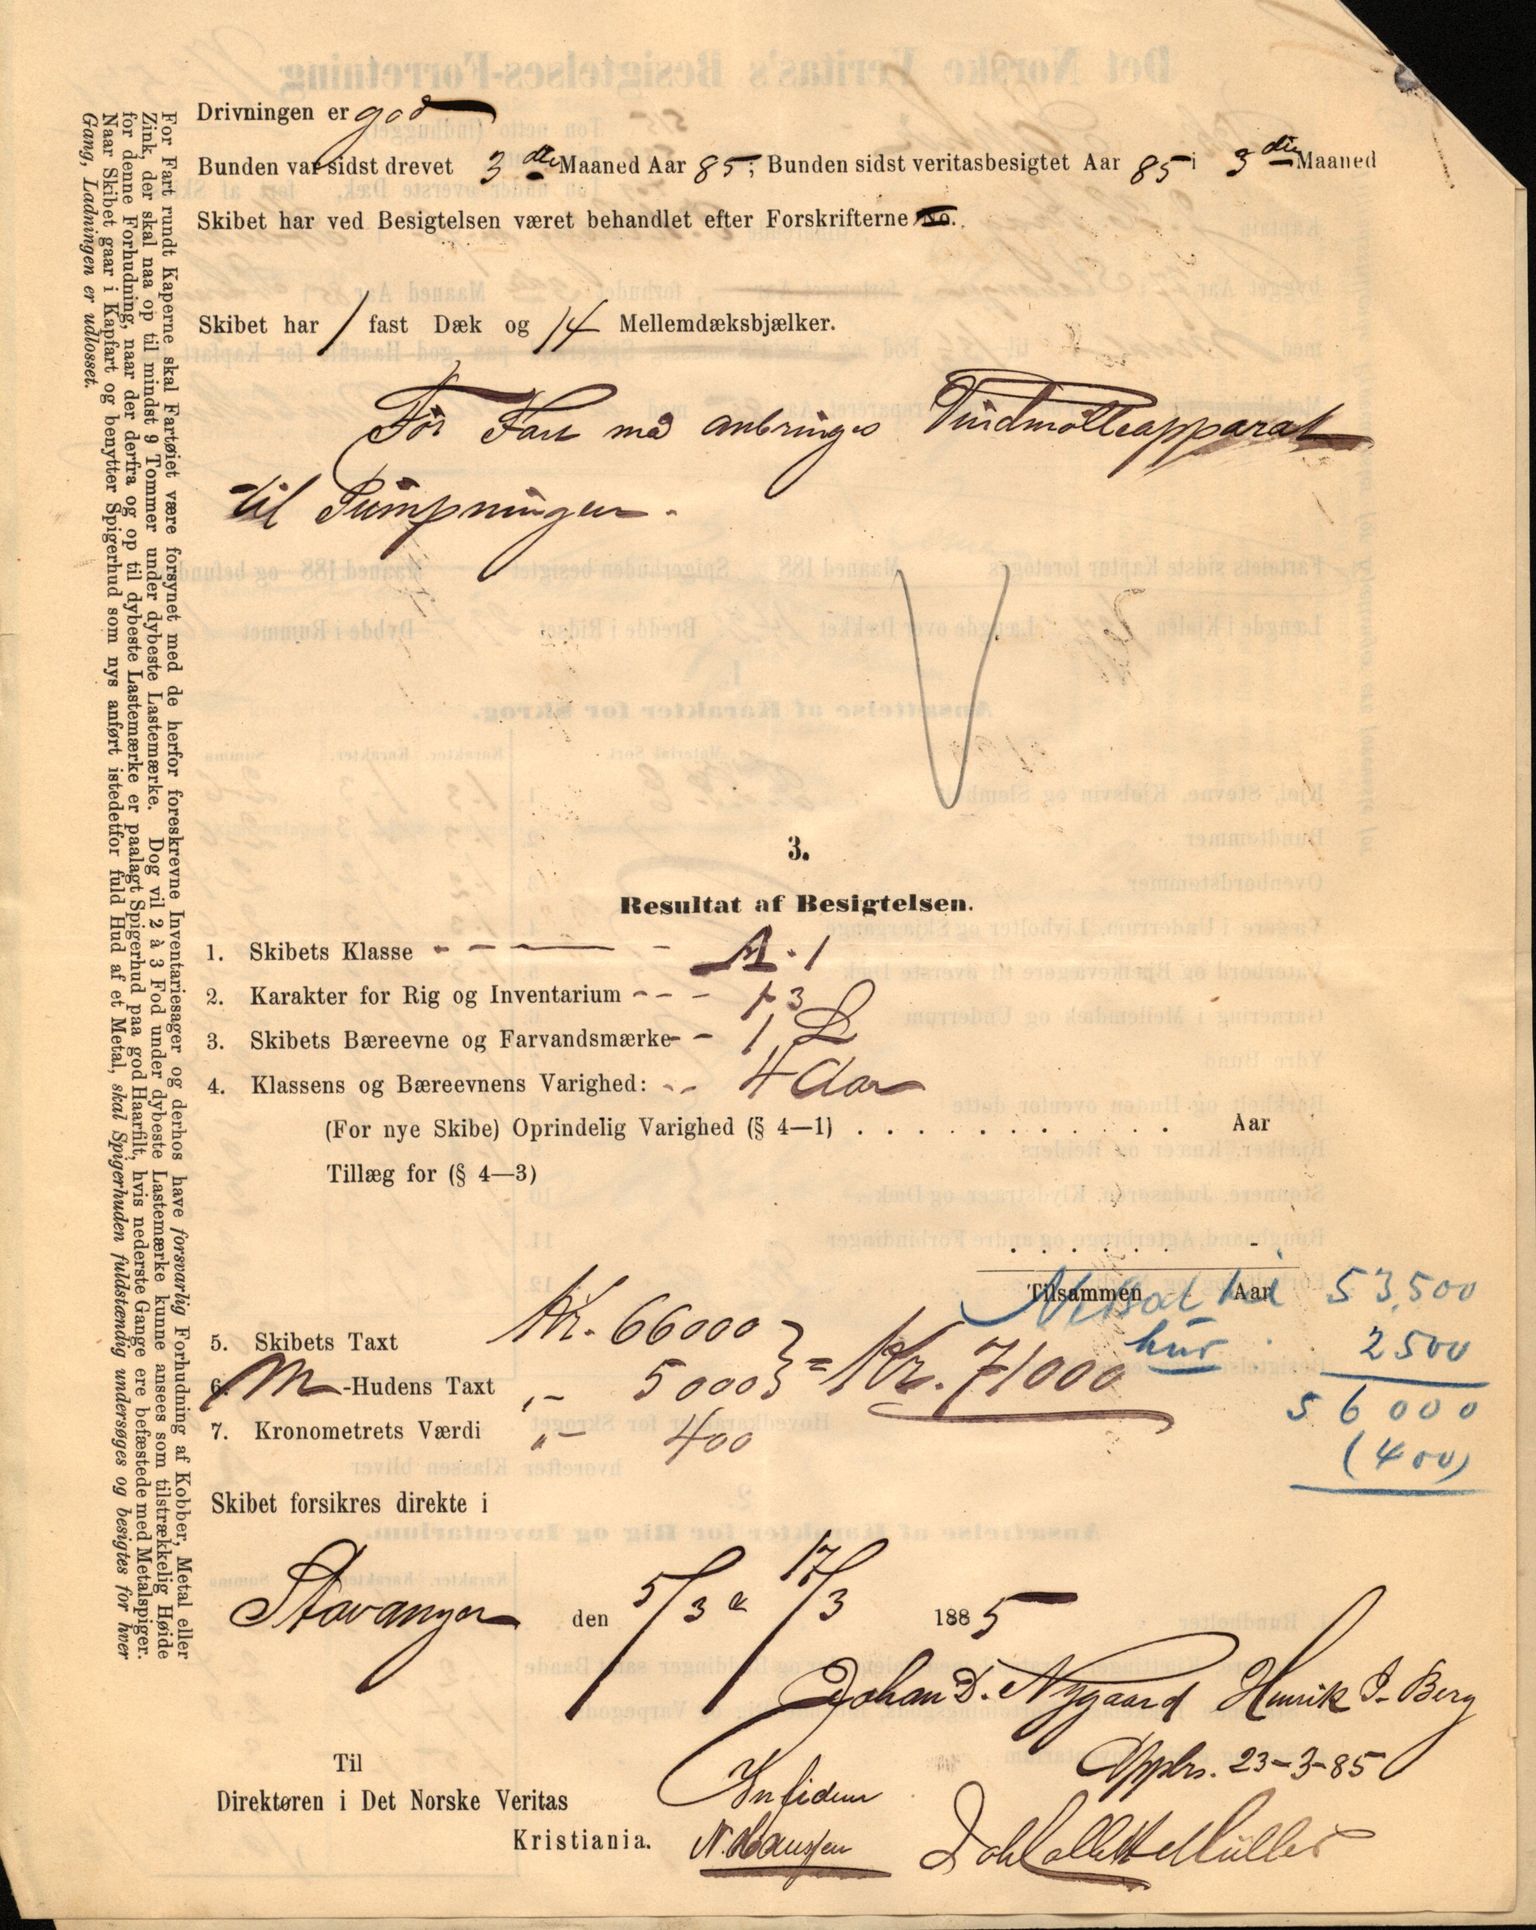 Drivningen er god
Bunden var sidst drevet 3 die Maaned Aar 85; Bunden sidst veritasbesigtet Aar 85 i 3 die Maaned
Skibet har ved Besigtelsen været behandlet efter Forskrifterne No.
Skibet har 1 fast Dæk og 14 Mellemdæksbjælker.
Før Fart må anbringes Vindmølleapparat
til Pumpningen.
3.
Resultat af Besigtelsen.
1. Skibets Klasse A. 1
2. Karakter for Rig og Inventarium 1 3
3. Skibets Bæreevne og Farvandsmærke 1, L
4. Klassens og Bæreevnens Varighed: 4 Aar
(For nye Skibe) Oprindelig Varighed (§ 4—1) . . . . . . . . . . . Aar
Tillæg for (§ 4—3)
Tilsammen Aar
Nedsat til 53,500
5. Skibets Taxt Kr. 66000
hud 2500
6. M-Hudens Taxt „- 5000 } = Kr. 71000
56000
7. Kronometrets Værdi „- 400
(400)
Skibet forsikres direkte i
Stavanger den 5/3 & 17/3 1885
Johan D. Nygaard Henrik I. Berg
Til
Direktøren i Det Norske Veritas
Kristiania.
Infidem
N. Hanssen
23-3-85
Collett Müller
For Fart rundt Kaperne skal Fartøiet være forsynet med de herfor foreskrevne Inventariesager og derhos have forsvarlig Forhudning af Kobber, Metal eller
Zink, der skal naa op til mindst 9 Tommer under dybeste Lastemærke. Dog vil 2 à 3 Fod under dybeste Lastemærke kunne ansees som tilstrækkelig Høide
for denne Forhudning, naar der derfra og op til dybeste Lastemærke er paalagt Spigerhud paa god Haarfilt, hvis nederste Gange ere befæstede med Metalspiger.
Naar Skibet gaar i Kapfart og benytter Spigerhud som nys anført istedetfor fuld Hud af et Metal, skal Spigerhuden fuldstændig undersøges og besigtes for hver
Gang, Ladningen er udlosset.